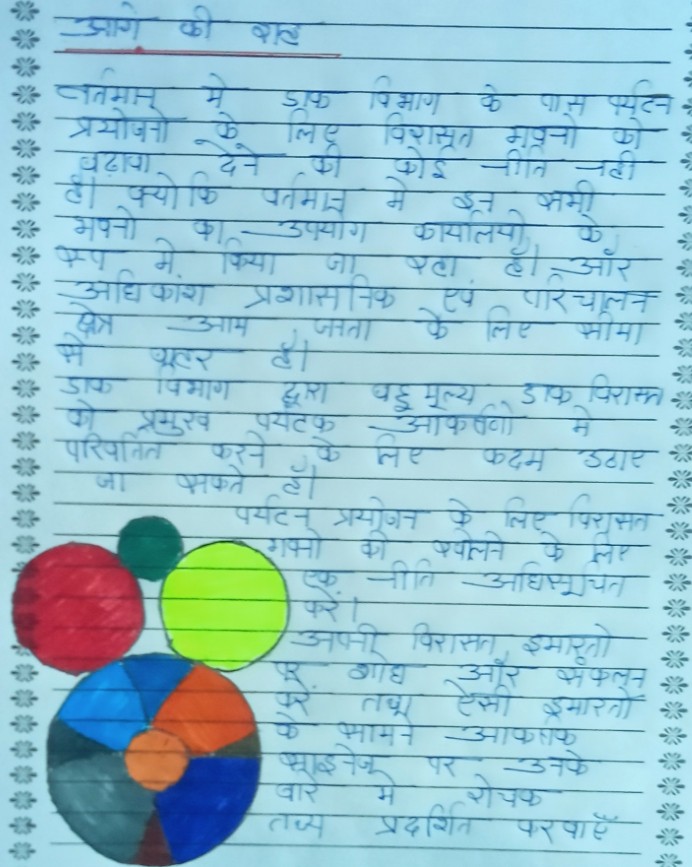 आगे की राह
वर्तमान में डाक विभाग के पास पर्यटन
प्रयोजनो के लिए विरासत भवनो को
बढ़ावा देने की कोई नीति नही
है। क्योकि वर्तमान में इन सभी
भवनो का उपयोग कार्यालयो के
रूप में किया जा रहा है। और
अधिकांश प्रशासनिक एवं परिचालन
क्षेत्र आम जनता के लिए सीमा
से बाहर है।
डाक विभाग द्वारा बहुमूल्य डाक विरासत
को प्रमुख पर्यटक आकर्षणो में
परिवर्तित करने के लिए कदम उठाए
जा सकते है।
पर्यटन प्रयोजन के लिए विरासत
भवनो को खोलने के लिए
एक नीति अधिसूचित
करें।
अपनी विरासत इमारतो
पर शोध और संकलन
करें तथा ऐसी इमारतो
के सामने आकर्षक
साइनेज पर उनके
बारे में रोचक
तथ्य प्रदर्शित करवाएँ